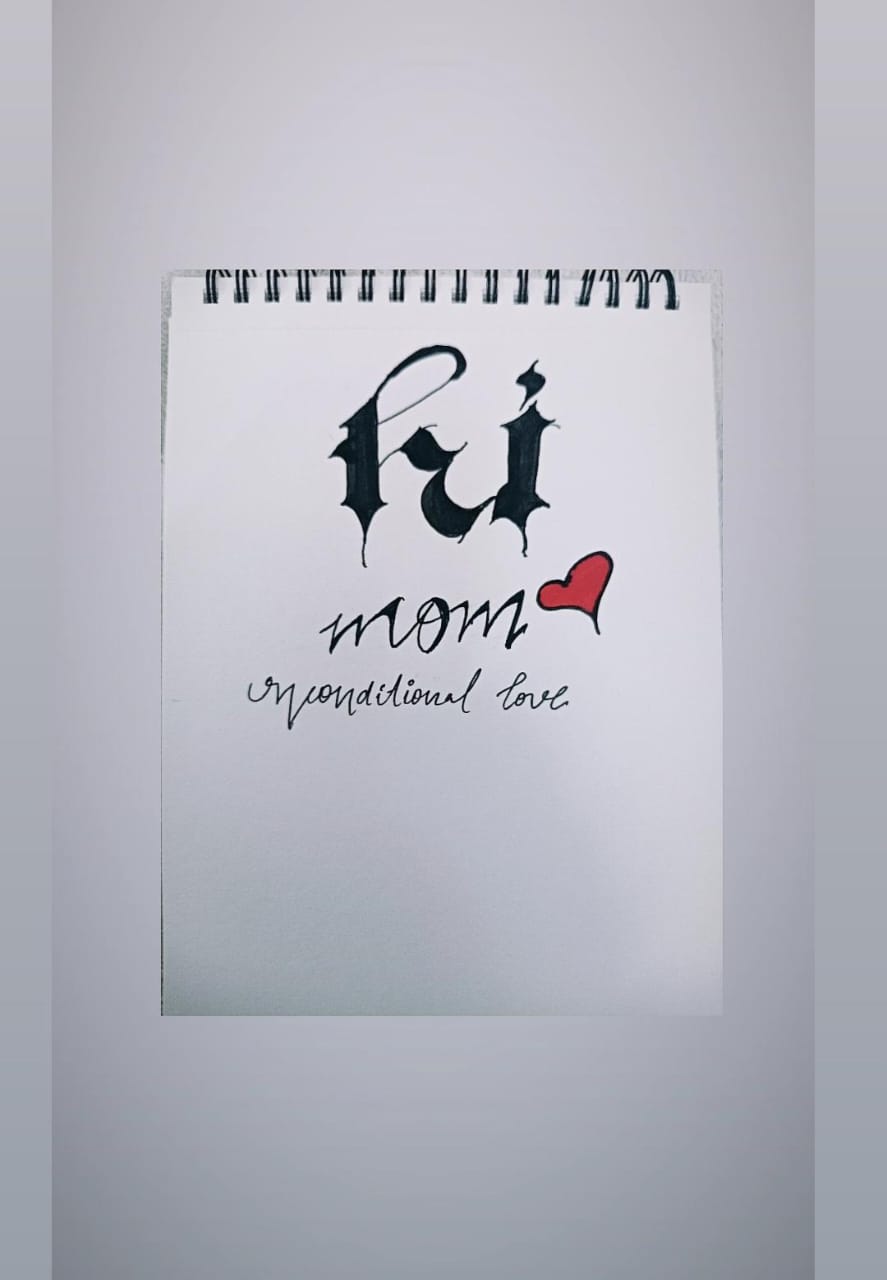 hi
mom
unconditional love